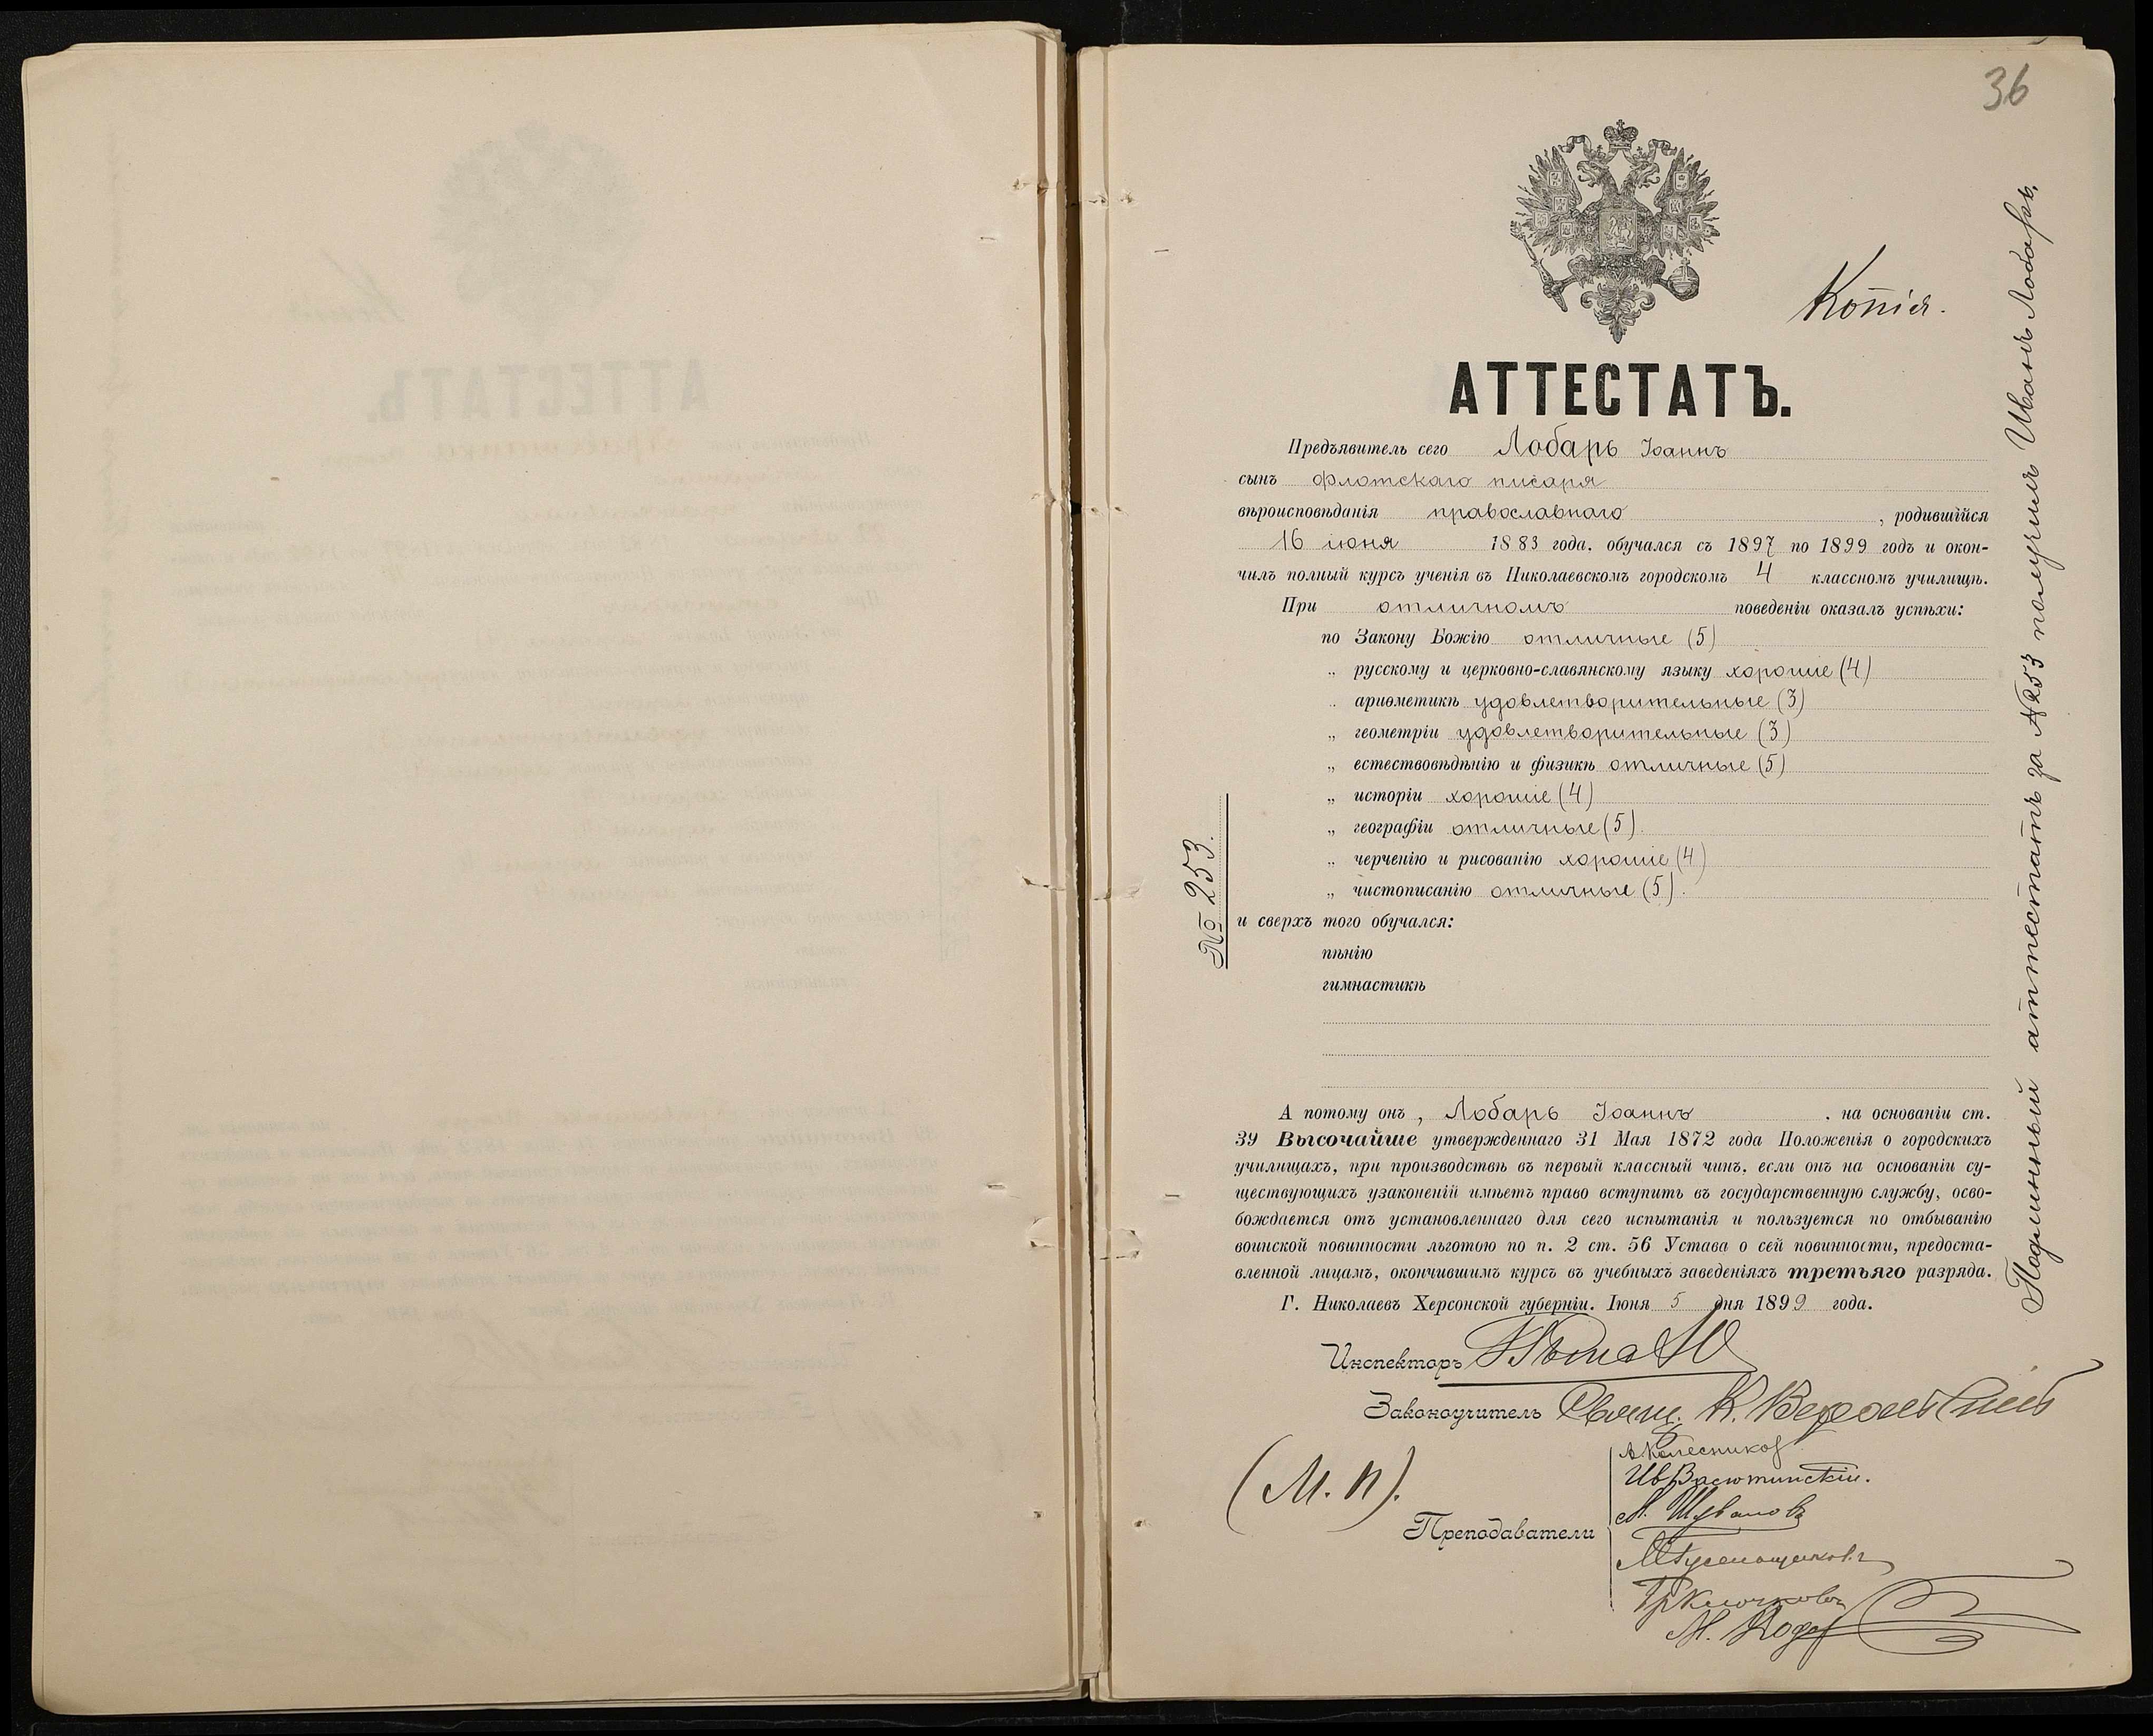 36
Копія.
АТТЕСТАТЪ.
Предъявитель сего Лобарь Іоаннъ
сынъ флотскаго писаря
вѣроисповѣданія православнаго, родившійся
16 іюня 1883 года, обучался съ 1897 по 1899 годъ и окон-
чилъ полный курсъ ученія въ Николаевскомъ городскомъ 4 классномъ училищѣ.
При отличномъ поведеніи оказалъ успѣхи:
по Закону Божію отличные (5)
„ русскому и церковно-славянскому языку хорошіе (4)
„ ариѳметикѣ удовлетворительные (3)
„ геометріи удовлетворительные (3)
„ естествовѣдѣнію и физикѣ отличные (5)
„ исторіи хорошіе (4)
„ географіи отличные (5).
„ черченію и рисованію хорошіе (4)
„ чистописанію отличные (5).
и сверхъ того обучался:
пѣнію
гимнастикѣ
№ 253.
А потому онъ, Лобарь Іоаннъ, на основаніи ст.
39 Высочайше утвержденнаго 31 Мая 1872 года Положенія о городскихъ
училищахъ, при производствѣ въ первый классный чинъ, если онъ на основаніи су-
ществующихъ узаконеній имѣетъ право вступить въ государственную службу, осво-
бождается отъ установленнаго для сего испытанія и пользуется по отбыванію
воинской повинности льготою по п. 2 ст. 56 Устава о сей повинности, предоста-
вленной лицамъ, окончившимъ курсъ въ учебныхъ заведеніяхъ третьяго разряда.
Г. Николаевъ Херсонской губерніи. Іюня 5 дня 1899 года.
Инспекторъ
Законоучитель Свящ. К.
(М. П).
Преподаватели
А. Колесников
Ив Васютинскій.
М. Шувалов
Подлинный аттестатъ за №253 получилъ Иванъ Лобарь.